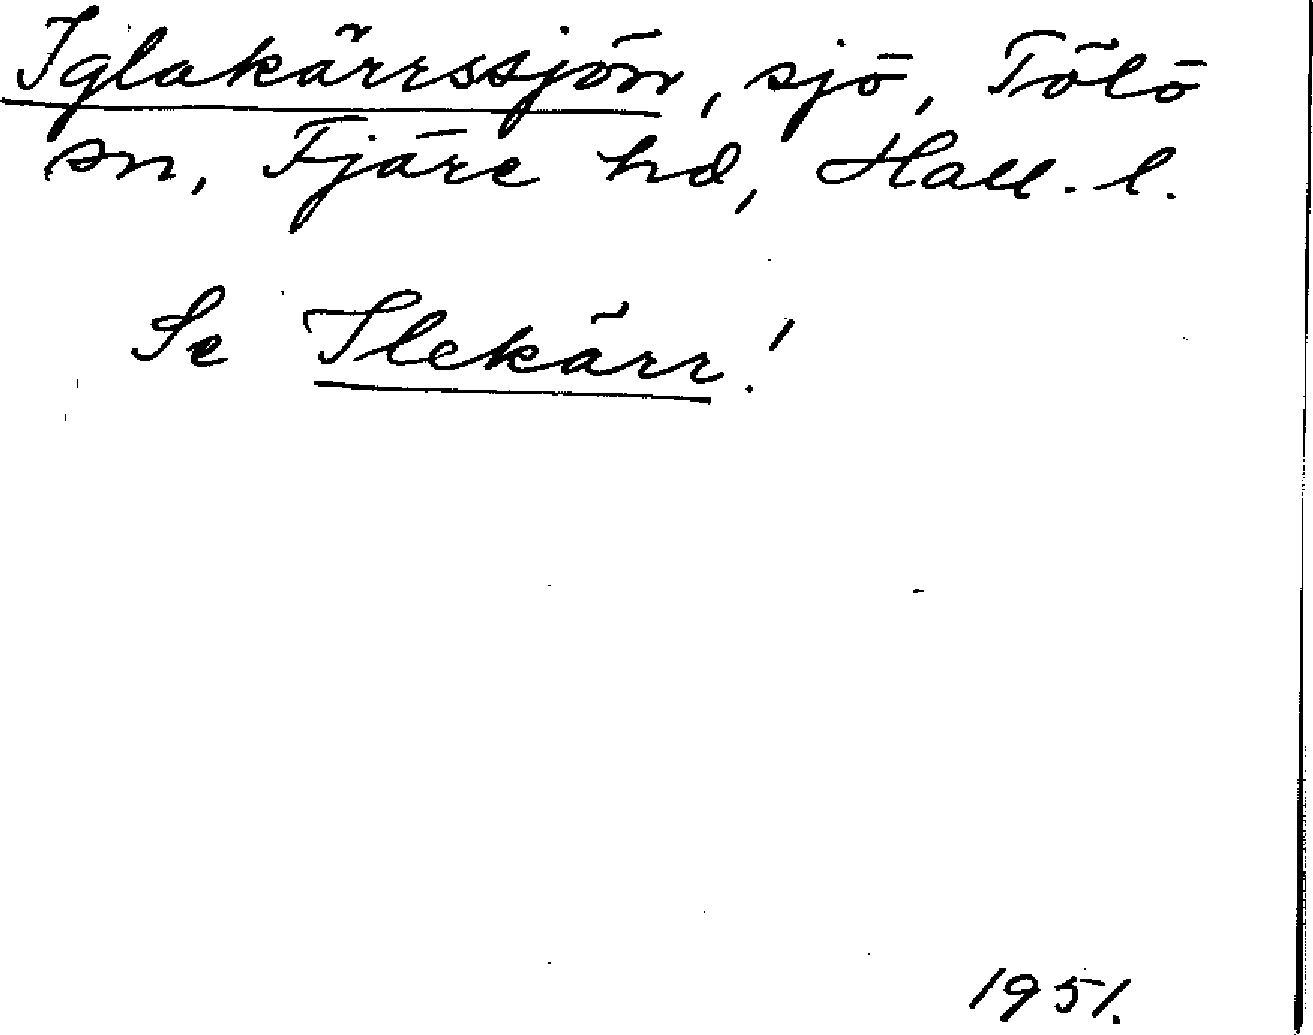 Iglakärrssjön, sjö, Tölö
sn, Fjäre hd, Hall. l.
Se Ilekärr!
1951.